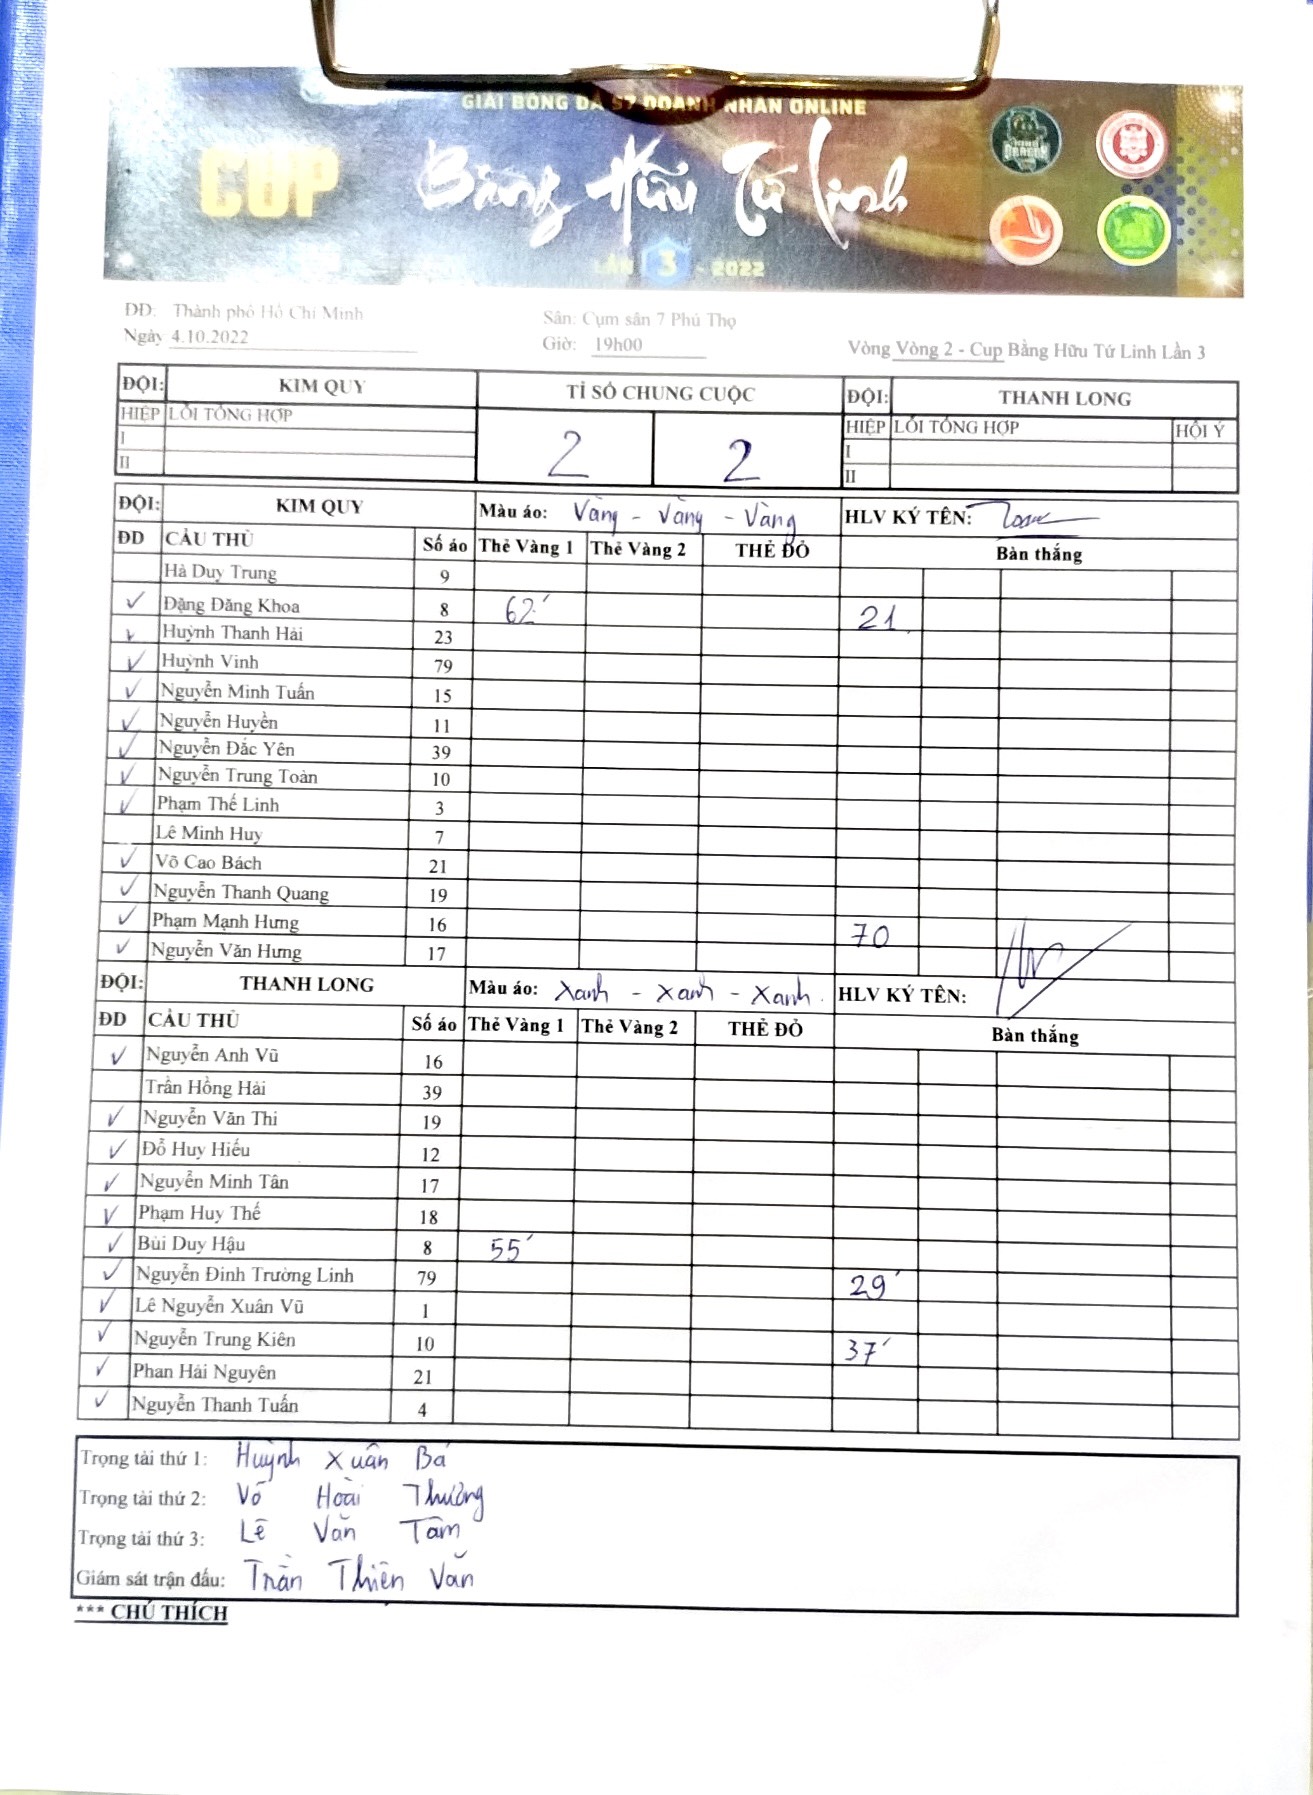 GIẢI BÓNG ĐÁ S7 DOANH NHÂN ONLINE
CUP Bằng Hữu Tứ Linh
LẦN 3 - 2022
ĐĐ: Thành phố Hồ Chí Minh
Sân: Cụm sân 7 Phú Thọ
Ngày 4.10.2022
Giờ: 19h00
Vòng Vòng 2 - Cup Bằng Hữu Tứ Linh Lần 3
ĐỘI: KIM QUY TỈ SỐ CHUNG CUỘC ĐỘI: THANH LONG
HIỆP LỖI TỔNG HỢP 2 2 HIỆP LỖI TỔNG HỢP HỘI Ý
I I
II II
ĐỘI: KIM QUY Màu áo: Vàng - Vàng - Vàng HLV KÝ TÊN:
ĐD CẦU THỦ Số áo Thẻ Vàng 1 Thẻ Vàng 2 THẺ ĐỎ Bàn thắng
Hà Duy Trung 9
✓ Đặng Đăng Khoa 8 62' 21
✓ Huỳnh Thanh Hải 23
✓ Huỳnh Vinh 79
✓ Nguyễn Minh Tuấn 15
✓ Nguyễn Huyền 11
✓ Nguyễn Đắc Yên 39
✓ Nguyễn Trung Toàn 10
✓ Phạm Thế Linh 3
Lê Minh Huy 7
✓ Võ Cao Bách 21
✓ Nguyễn Thanh Quang 19
✓ Phạm Mạnh Hưng 16 70
✓ Nguyễn Văn Hưng 17
ĐỘI: THANH LONG Màu áo: Xanh - Xanh - Xanh HLV KÝ TÊN:
ĐD CẦU THỦ Số áo Thẻ Vàng 1 Thẻ Vàng 2 THẺ ĐỎ Bàn thắng
✓ Nguyễn Anh Vũ 16
Trần Hồng Hải 39
✓ Nguyễn Văn Thi 19
✓ Đỗ Huy Hiếu 12
✓ Nguyễn Minh Tân 17
✓ Phạm Huy Thế 18
✓ Bùi Duy Hậu 8 55'
✓ Nguyễn Đình Trường Linh 79 29'
✓ Lê Nguyễn Xuân Vũ 1
✓ Nguyễn Trung Kiên 10 37'
✓ Phan Hải Nguyên 21
✓ Nguyễn Thanh Tuấn 4
Trọng tài thứ 1: Huỳnh Xuân Bá
Trọng tài thứ 2: Võ Hoài Thương
Trọng tài thứ 3: Lê Văn Tâm
Giám sát trận đấu: Trần Thiên Văn
*** CHÚ THÍCH